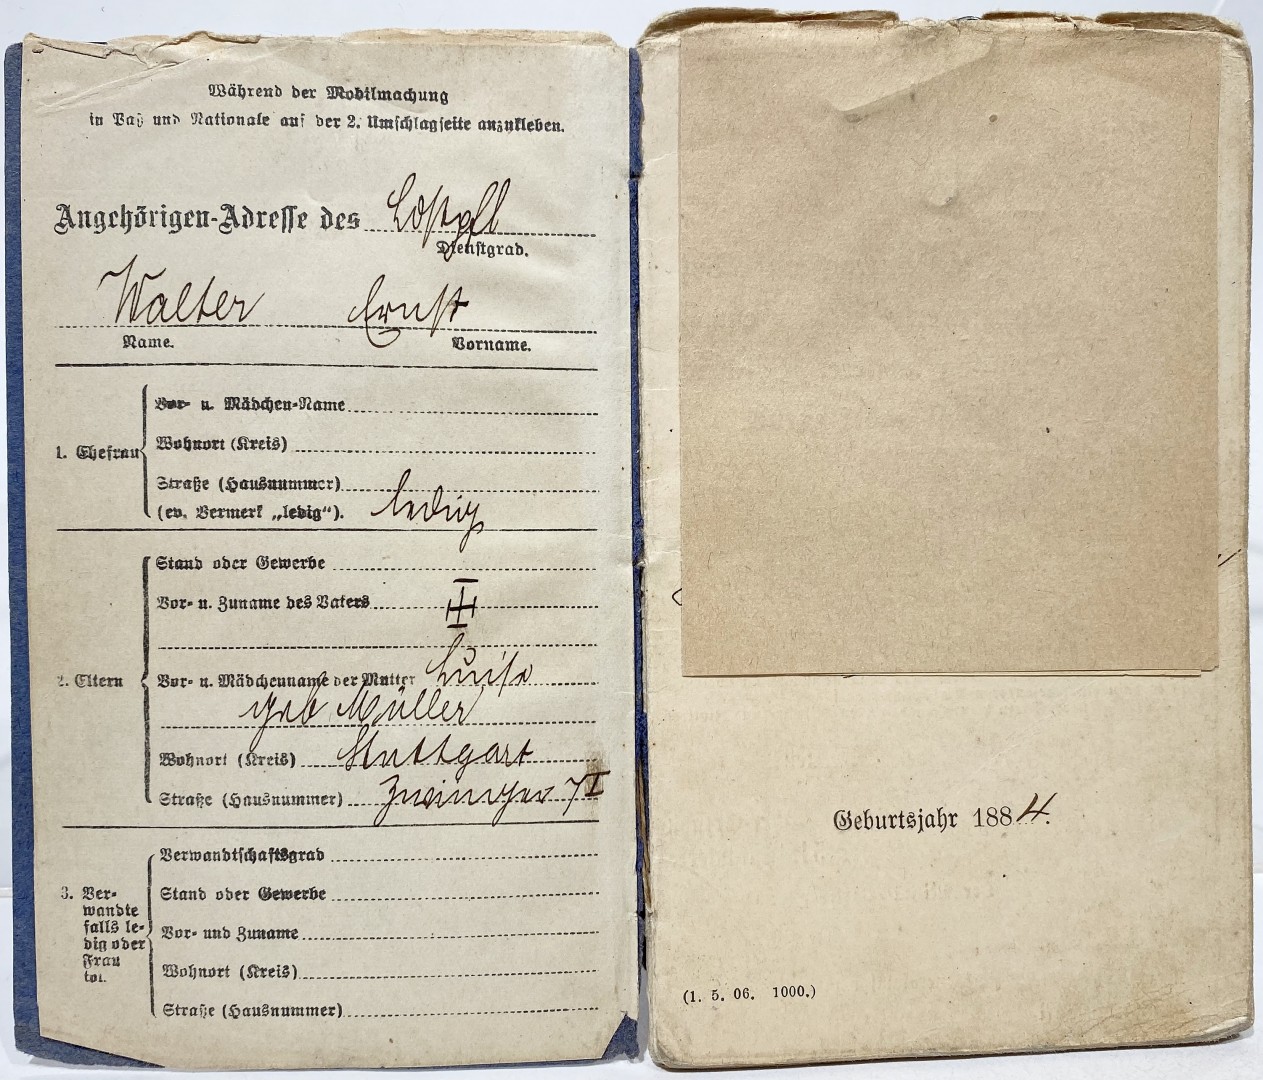 Während der Mobilmachung
in Paß und Nationale auf der 2. Umschlagseite anzukleben.
Angehörigen-Adresse des
Dienstgrad.
Walter Ernst
Name. Vorname.
1. Ehefrau
Vor- u. Mädchen-Name
Wohnort (Kreis)
Straße (Hausnummer)
(ev. Vermerk „ledig“). ledig
2. Eltern
Stand oder Gewerbe
Vor- u. Zuname des Vaters
Vor- u. Mädchenname der Mutter Luise
geb Müller
Wohnort (Kreis) Stuttgart
Straße (Hausnummer) Zwinger 7 I
3. Ver-
wandte
falls le-
dig oder
Frau
tot.
Verwandtschaftsgrad
Stand oder Gewerbe
Vor- und Zuname
Wohnort (Kreis)
Straße (Hausnummer)
Geburtsjahr 1884.
(1. 5. 06. 1000.)